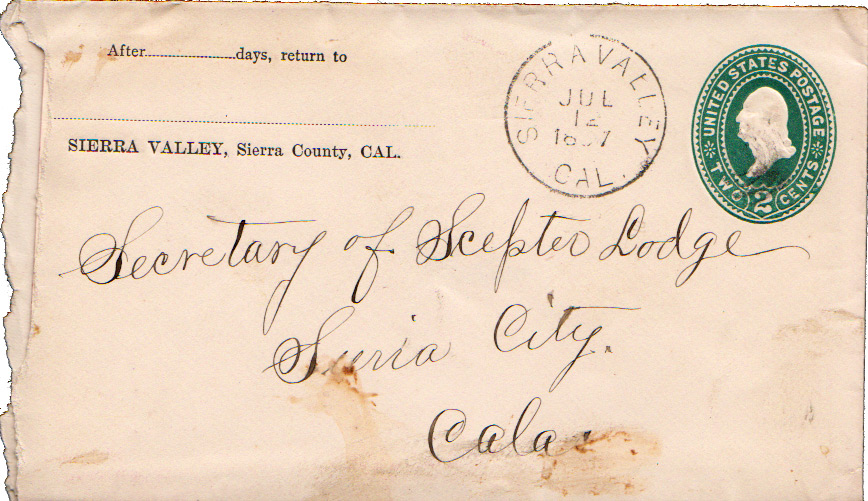 After..............days, return to
SIERRA VALLEY, Sierra County, CAL.
SIERRA VALLEY
JUL
12
CAL.
UNITED STATES POSTAGE
TWO 2 CENTS
Secretary of Scepter Lodge
Sierra City.
Cala.